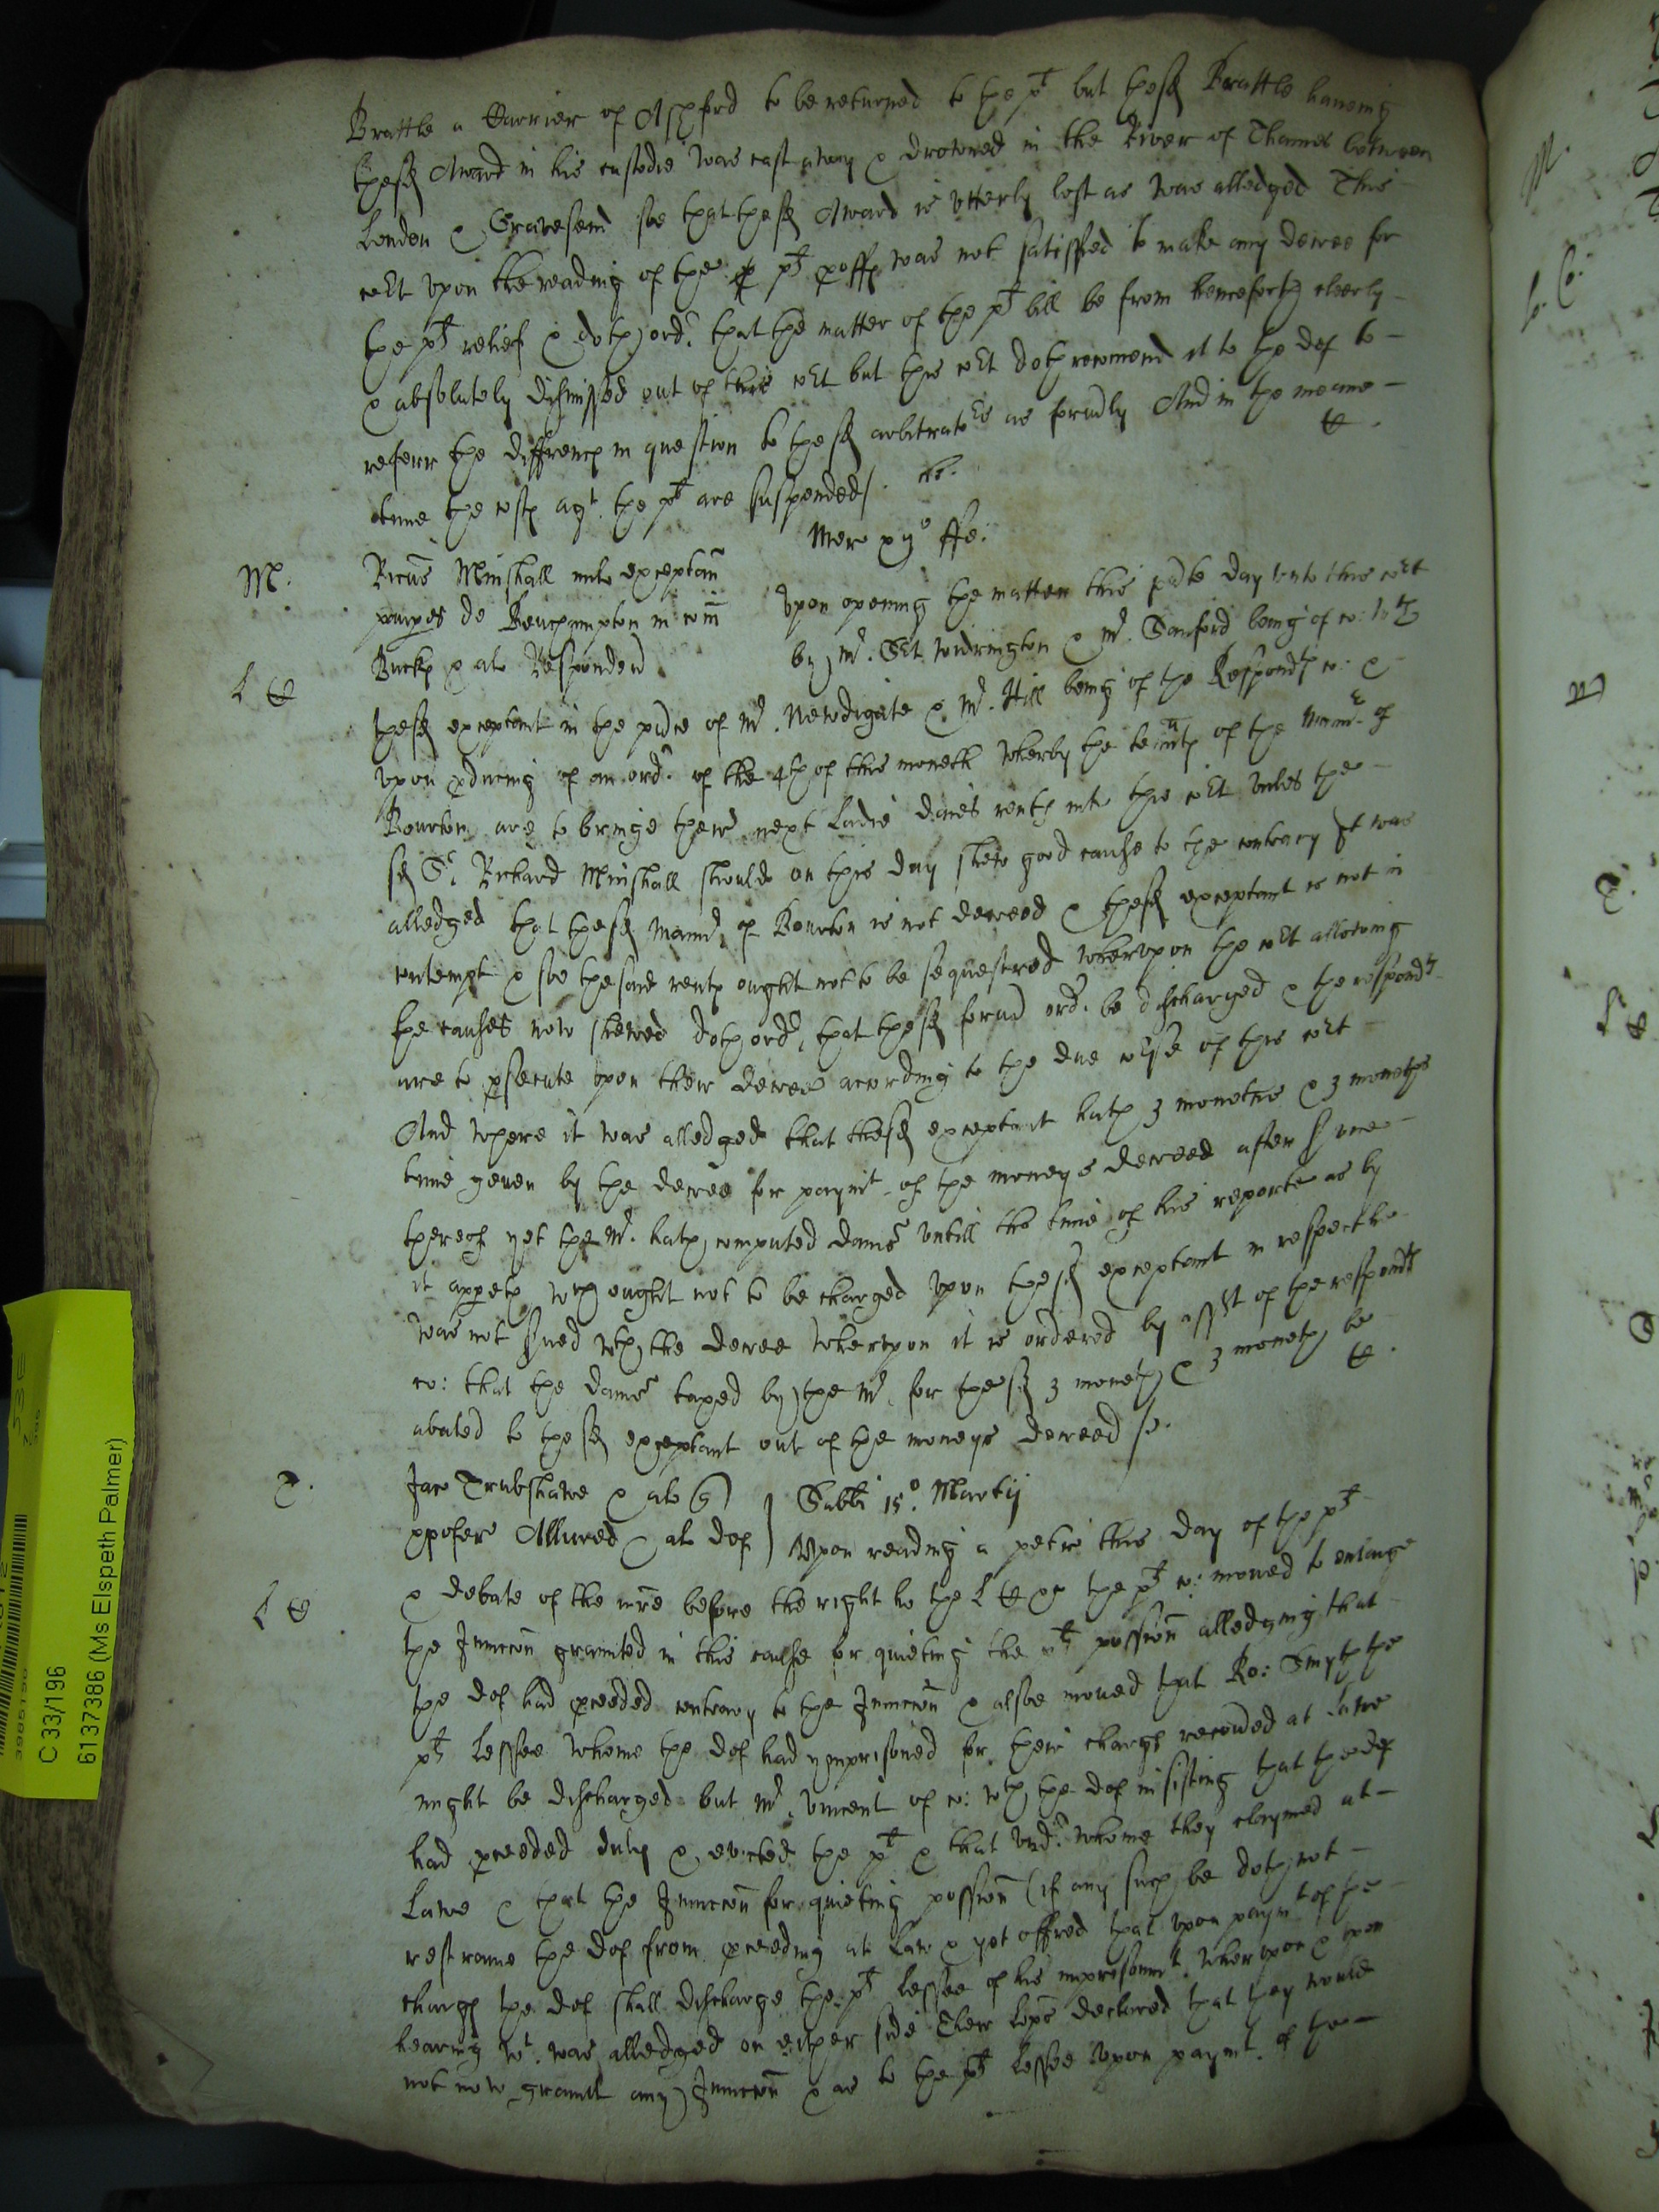 Brattle a Carrier of Ashford to be returned to the plt but the sd Brattle haveing
the sd Award in his custodie was cast away & drowned in the River of Thames betweene
London & Gravesend soe that the sd Award is utterly lost as was alledged This
Cort upon the reading of the plts proffes was not satisfied to make any decree for
the plts relief & doth ordr that the matter of the plts bill be from henceforth cleerly
& absolutely dismissed out of this cort but this cort doth recomend it to the def to
referr the differences in question to the sd arbitrators as formly And in the meane
tyme the costs agt the plt are suspended
Mer xijo Fe:
M. Ricus Minshall miles exceptan
paupes de Buckhampton in com
Bucks & als Respondend
Upon opening the matter this pnte day unto this cort
by Mr. Sert Widrington & Mr. Sanford being of co: wth
L C
the sd exceptant in the pnce of Mr. Newdigate & Mr. Hill being of the Respondts co: &
upon pduceing of an ordr of the 4th of this moneth wherby the tennts of the Mannr of
Bourton are to bringe their next Ladie daies rents into this cort unles the
sd Sr Richard Minshall should on this day shew good cause to the contrary It was
alledged that the sd Mannr of Bourton is not decreed & the sd exceptant is not in
contempt & soe the said rents ought not to be sequestred wherupon the cort allowing
the causes now shewed doth ordr that the sd formr ordr be discharged & the respondts
are to psecute upon their decree according to the due corse of this cort
And where it was alledged that the sd exceptant hath 3 monethes & 3 monethes
time geven by the decree for paymt of the moneys decreed after service
thereof yet the Mr. hath computed dams untill the time of his reporte as by
it appeth wch ought not to be charged upon the sd exceptant in respect he
was not served wth the decree wherupon it is ordered by assent of the respondts
co: that the dams taxed by the Mr. for the sd 3 moneths & 3 moneths be
abated to the sd exceptant out of the moneys decreed
T. Jaco Trubshawe & als
Xpofero Allured & als def
Sabbi 15o Martij
Upon reading a petic this day of the plts
L C
& debate of the mre before the right ho the L C the plts co: moved to enlarge
the Iniuncon graunted in this cause for quieting the plts possion alledging that
the def had pceeded contrary to the Iniuncon & alsoe moved that Ro: Smyth the
plts Lessee whome the def had ymprisoned for their charges recovred at Lawe
might be discharged but Mr. Vincent of co: wth the def insisting that the def
had pceeded duly & evicted the plt & that undr whome they claymed at
Lawe & that the Iniuncon for quieting possion (if any such be doth not
restraine the def from pceeding at Law & yet offred that upon paymt of the
charges the def shall discharge the plts Lessee of his imprisonmt. Wherupon & upon
hearing wt was alledged on either side Their Lopps declared that they would
not now graunt any Iniuncon & as to the plts Lessee upon paymt. of the
C 33/196
6137386 (Ms Elspeth Palmer)